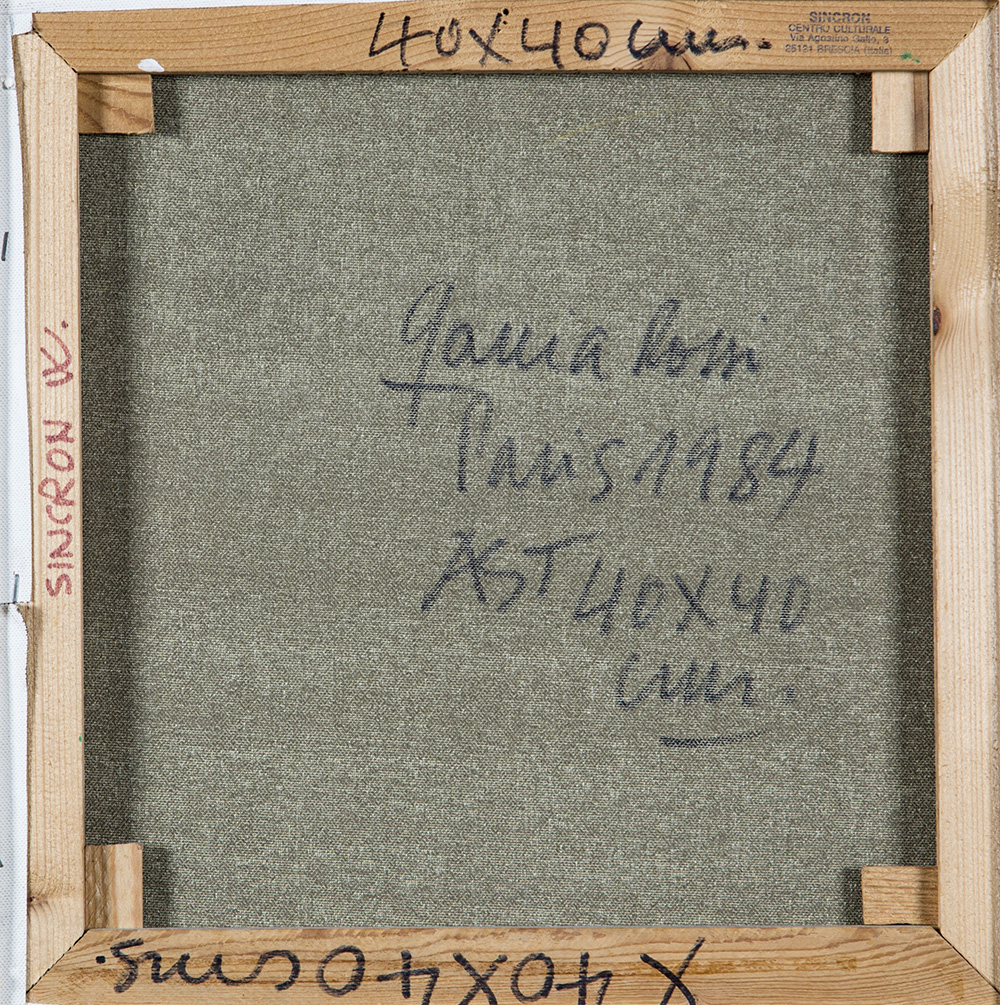 40X40 cm.
SINCRON
CENTRO CULTURALE
Via Agostino Gallo, 3
25121 BRESCIA (Italia)
SINCRON
Garcia Rossi
Paris 1984
AST 40X40
cm.
X 40X40 cms.